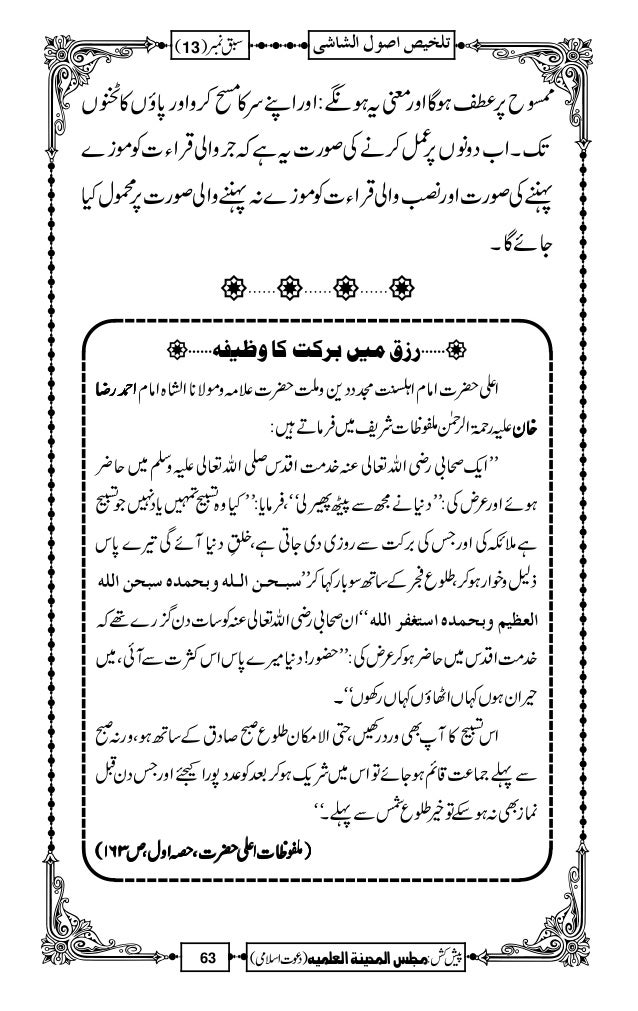 تلخیص اصول الشاشی
سبق نمبر (13)
ممسوح پر عطف ہوگا اور معنی یہ ہونگے: اور اپنے سر کا مسح کرو اور پاؤں کا ٹخنوں
تک۔ اب دونوں پر عمل کرنے کی صورت یہ ہے کہ جر والی قراءت کو موزے
پہننے کی صورت اور نصب والی قراءت کو موزے نہ پہننے والی صورت پر محمول کیا
جائے گا۔
......رزق میں برکت کا وظیفہ......
اعلی حضرت امام اہلسنت مجدد دین وملت حضرت علامہ ومولانا الشاہ امام احمد رضا
خان علیہ رحمۃ الرحمٰن ملفوظات شریف میں فرماتے ہیں:
’’ایک صحابی رضی اللہ تعالی عنہ خدمت اقدس صلی اللہ تعالی علیہ وسلم میں حاضر
ہوئے اور عرض کی: ’’دنیا نے مجھ سے پیٹھ پھیر لی‘‘، فرمایا: ’’کیا وہ تسبیح تمہیں یاد نہیں جو تسبیح
ہے ملائکہ کی اور جس کی برکت سے روزی دی جاتی ہے، خلقِ دنیا آئے گی تیرے پاس
ذلیل وخوار ہوکر، طلوع فجر کے ساتھ سو بار کہا کر ’’سبحن اللہ وبحمدہ سبحن اللہ
العظیم وبحمدہ استغفر اللہ‘‘ ان صحابی رضی اللہ تعالی عنہ کو سات دن گزرے تھے کہ
خدمت اقدس میں حاضر ہوکر عرض کی: ’’حضور! دنیا میرے پاس اس کثرت سے آئی، میں
حیران ہوں کہاں اٹھاؤں کہاں رکھوں‘‘۔
اس تسبیح کا آپ بھی ورد رکھیں، حتی الامکان طلوع صبح صادق کے ساتھ ہو، ورنہ صبح
سے پہلے جماعت قائم ہوجائے تو اس میں شریک ہوکر بعد کو عدد پورا کیجئے اور جس دن قبل
نماز بھی نہ ہوسکے تو خیر طلوع شمس سے پہلے۔‘‘
(ملفوظات اعلی حضرت، حصہ اول، ص ۱۶۳)
پیش کش: مجلس المدینۃ العلمیہ (دعوت اسلامی)
63